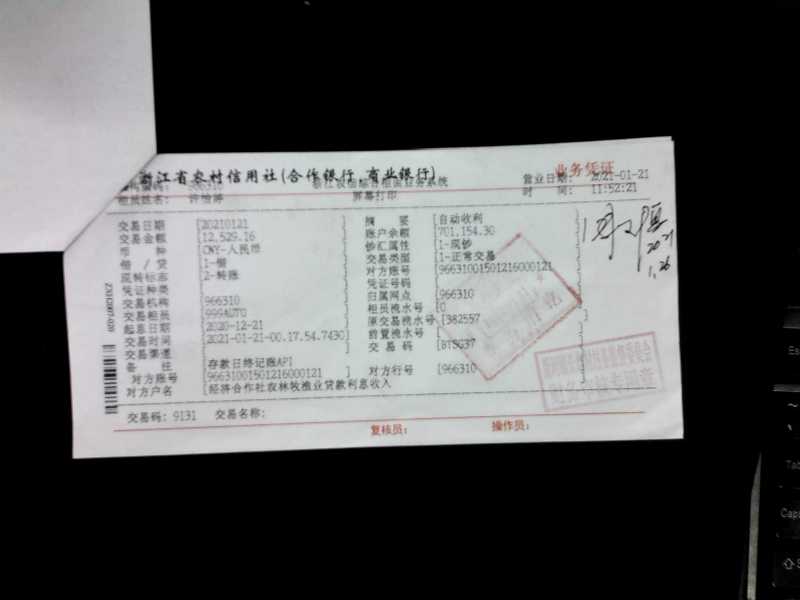 浙江省农村信用社(合作银行,商业银行)
业务凭证
营业日期: 2021-01-21
屏幕打印
时 间: 11:52:21
交易日期 [20210121] 摘 要 [自动收利]
交易金额 [12,529.16] 账户余额 [701,154.30]
币 种 [CNY-人民币] 钞汇属性 [1-现钞]
借 / 贷 [1-借] 交易类型 [1-正常交易]
现转标志 [2-转账] 对方账号 [966310015012160001​21]
凭证种类 [ ] 凭证号码 [ ]
交易机构 [966310] 归属网点 [966310]
交易柜员 [999AUTO] 柜员流水号 [0]
起息日期 [2020-12-21] 原交易流水号 [382557]
交易时间 [2021-01-21-00.17.54.7430] 前置流水号 [ ]
交易渠道 [ ] 交 易 码 [BTSG37]
备 注 [存款日终记账API]
对方账号 [9663100150121600​0121] 对方行号 [966310]
对方户名 [经济合作社农林牧渔业贷款利息收入]
交易码: 9131 交易名称:
复核员: 操作员:
2021
1.26
财务审核专用章